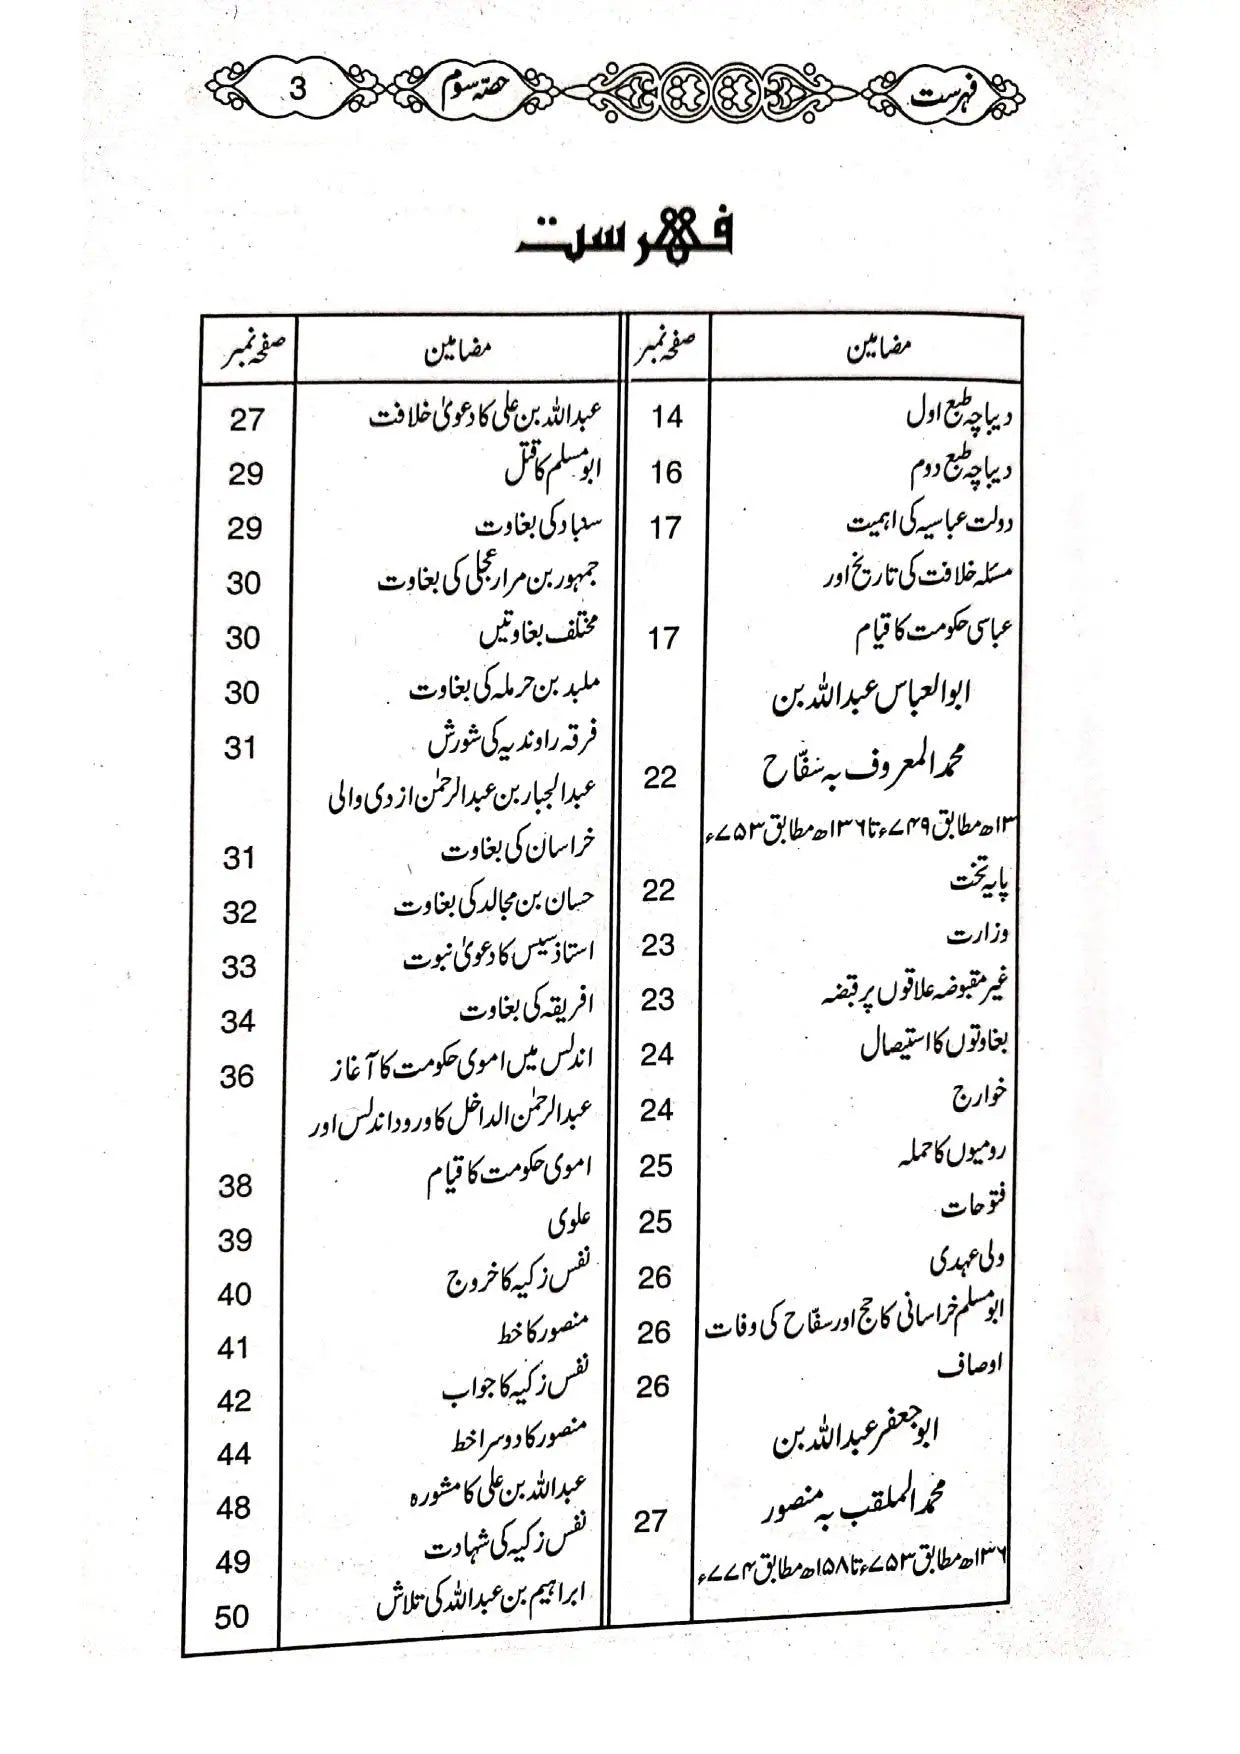 فہرست
حصّہ سوم
3
فہرست
مضامین
صفحہ نمبر
دیباچہ طبع اول
14
دیباچہ طبع دوم
16
دولت عباسیہ کی اہمیت
17
مسئلہ خلافت کی تاریخ اور
عباسی حکومت کا قیام
17
ابوالعباس عبداللہ بن
محمد المعروف بہ سفّاح
22
۱۳ھ مطابق ۷۴۹ء تا ۱۳۶ھ مطابق ۷۵۳ء
پایہ تخت
22
وزارت
23
غیر مقبوضہ علاقوں پر قبضہ
23
بغاوتوں کا استیصال
24
خوارج
24
رومیوں کا حملہ
25
فتوحات
25
ولی عہدی
26
ابومسلم خراسانی کا حج اور سفّاح کی وفات
26
اوصاف
26
ابوجعفر عبداللہ بن
محمد الملقب بہ منصور
27
۱۳۶ھ مطابق ۷۵۳ء تا ۱۵۸ھ مطابق ۷۷۴ء
مضامین
صفحہ نمبر
عبداللہ بن علی کا دعویٰ خلافت
27
ابومسلم کا قتل
29
سنباد کی بغاوت
29
جمہور بن مرار عجلی کی بغاوت
30
مختلف بغاوتیں
30
ملبد بن حرملہ کی بغاوت
30
فرقہ راوندیہ کی شورش
31
عبدالجبار بن عبدالرحمٰن ازدی والی
خراسان کی بغاوت
31
حسان بن مجالد کی بغاوت
32
استاذسیس کا دعویٰ نبوت
33
افریقہ کی بغاوت
34
اندلس میں اموی حکومت کا آغاز
36
عبدالرحمٰن الداخل کا ورود اندلس اور
اموی حکومت کا قیام
38
علوی
39
نفس زکیہ کا خروج
40
منصور کا خط
41
نفس زکیہ کا جواب
42
منصور کا دوسرا خط
44
عبداللہ بن علی کا مشورہ
48
نفس زکیہ کی شہادت
49
ابراہیم بن عبداللہ کی تلاش
50